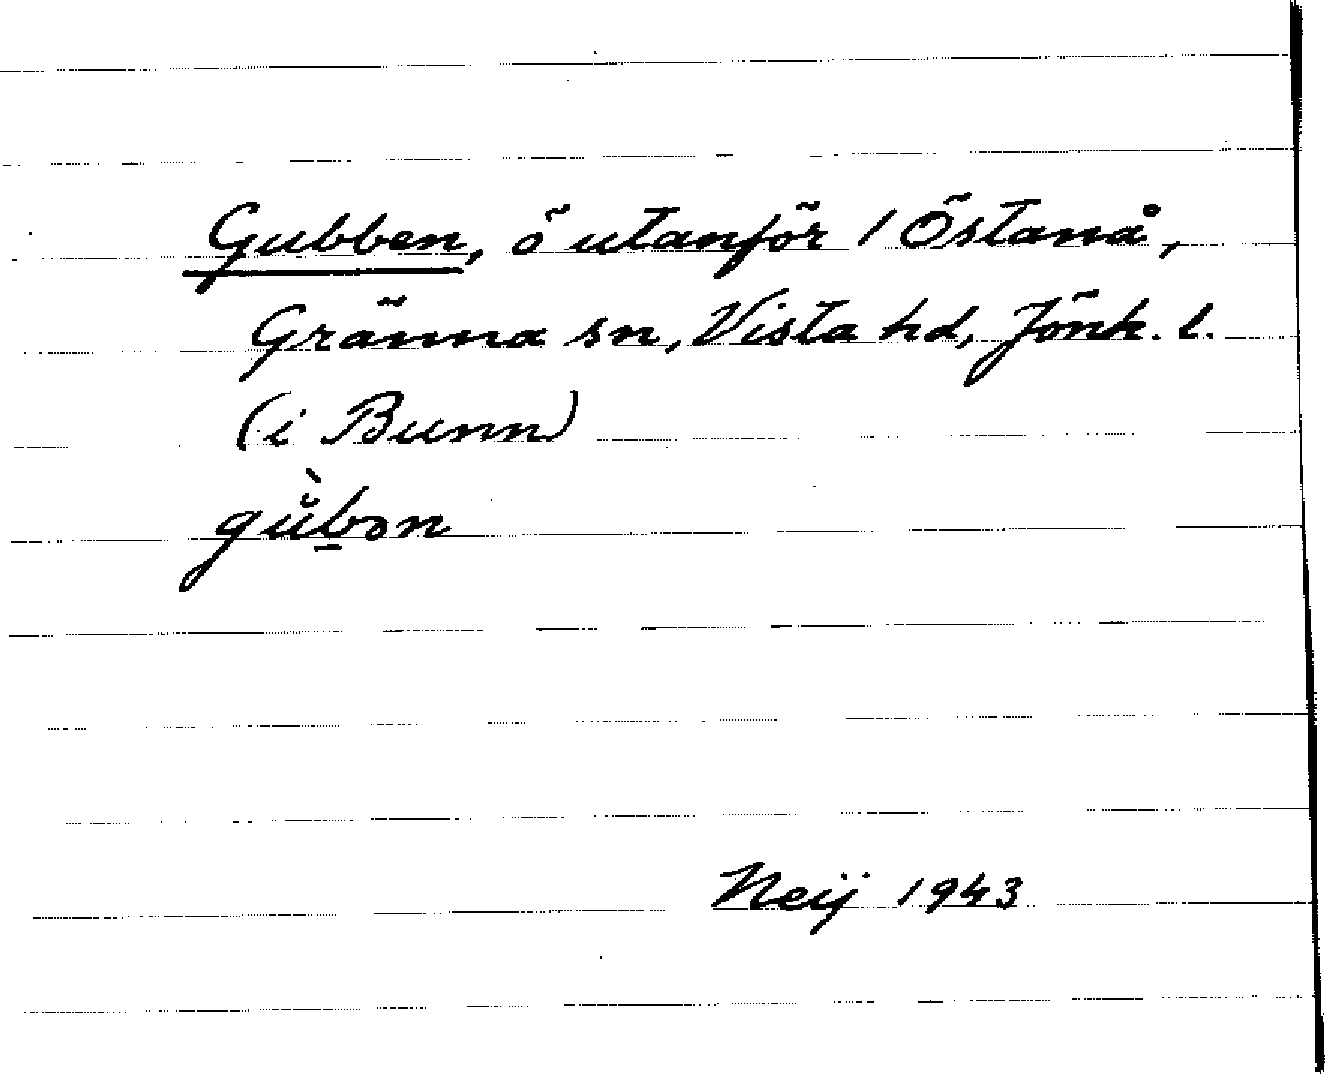 Gubben, ö utanför 1 Östanå,
Gränna sn, Vista hd, Jönk. l.
(i Bunn)
gŭ̀b̲ən
Neij 1943